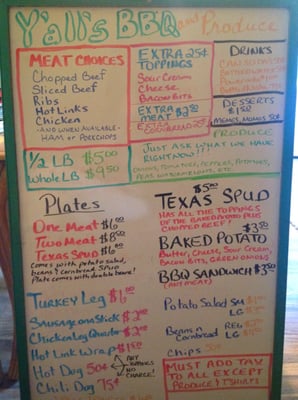 Y'all's BBQ and Produce
MEAT CHOICES
Chopped Beef
Sliced Beef
Ribs
Hot Links
Chicken
-AND WHEN AVAILABLE-
HAM or PORKCHOPS
EXTRA 25¢
TOPPINGS
Sour Cream
Cheese
BACON BITS
EXTRA
MEAT $2.00
DRINKS
DESSERTS
$1.50
1/2 LB $5.00
Whole LB $9.50
PRODUCE
JUST ASK WHAT WE HAVE
RIGHT NOW!!!
ONIONS, TOMATOES, PEPPERS, POTATOES,
PEAS, WATERMELONS, ETC.
Plates
One Meat $6.00
Two Meat $8.50
Texas Spud $6.00
comes with potato salad,
beans & cornbread SPUD
Plate comes with double beans!
$5.00
TEXAS SPUD
HAS ALL THE TOPPINGS
OF THE BAKED POTATO PLUS
CHOPPED BEEF!
$3.50
BAKED POTATO
Butter, Cheese, Sour Cream,
BACON BITS, GREEN ONIONS
BBQ SANDWICH $3.50
(ANY MEAT)
Turkey Leg $6.00
Sausage on Stick $2.00
Chicken Leg Quarter $2.00
Hot Link Wrap $1.50
Hot Dog 50¢
Chili Dog 75¢
ANY
TOPPINGS
NO
CHARGE!
Potato Salad SM
LG
Beans n REG
Cornbread LG
Chips
MUST ADD TAX
TO ALL EXCEPT
PRODUCE & T'SHIRTS